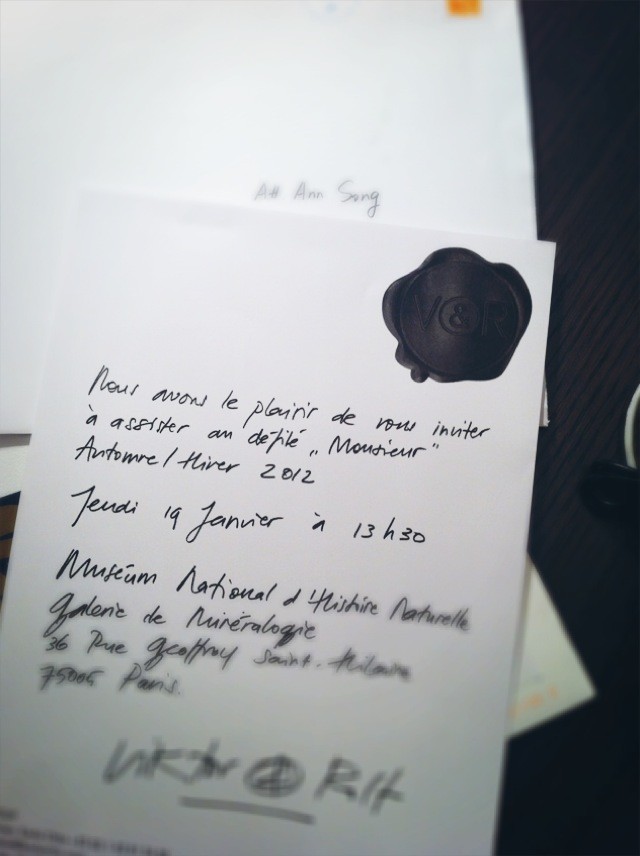 Att Ann Song
V&R
Nous avons le plaisir de vous inviter
à assister au défilé „Monsieur"
Automne/Hiver 2012
Jeudi 19 Janvier à 13h30
Muséum National d'Histoire Naturelle
Galerie de Minéralogie
36 Rue Geoffroy Saint-Hilaire
75005 Paris.
Viktor & Rolf